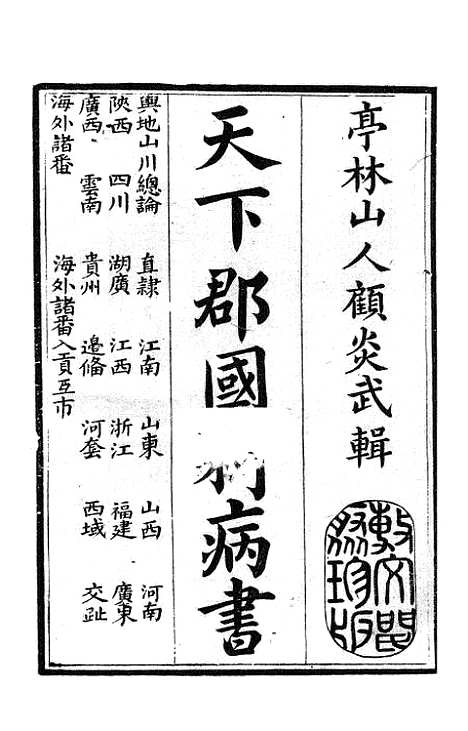 亭林山人顧炎武輯
敷文閣聚珍版
天下郡國利病書
輿地山川總論 直隸 江南 山東 山西 河南
陝西 四川 湖廣 江西 浙江 福建 廣東
廣西 雲南 貴州 邊俻 河套 西域 交趾
海外諸番 海外諸番入貢互市